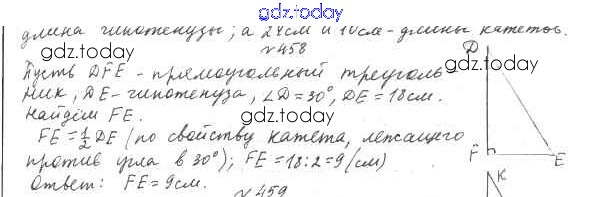 gdz.today
длина гипотенузы; а 24см и 10см - длины катетов.
gdz.today
№458
Пусть DFE - прямоугольный треуголь-
ник, DE - гипотенуза, ∠D = 30°, DE = 18см.
Найдём FE.
gdz.today
FE = 1/2 DE (по свойству катета, лежащего
против угла в 30°); FE = 18:2 = 9 (см)
Ответ: FE = 9см.
gdz.today
№459
D
F
E
K